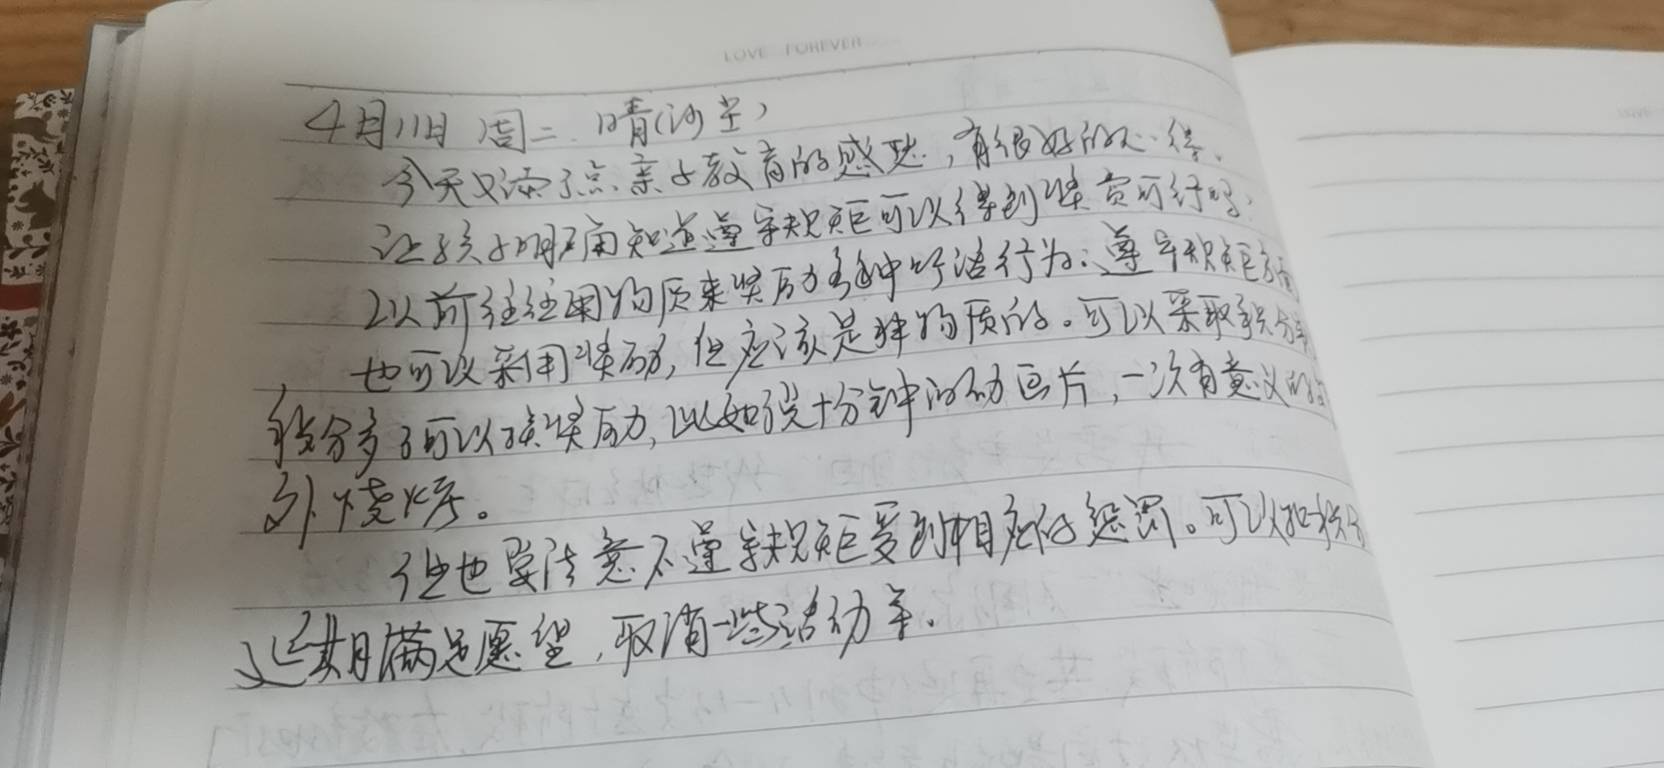 LOVE FOREVER
4月11日 周二 晴(沙尘)
今天又添了点亲子教育的感慨,有很好的心得。
让孩子明确知道遵守规矩可以得到奖赏可行吗?
以前往往用物质来奖励多种 行为:遵守规矩方面
也可以采用奖励,但应该是非物质的。可以采取积分制
积分多了可以换奖励,比如说十分钟的动画片,一次有意义的
外烧烤。
但也要注意不遵守规矩受到相应的惩罚。可以扣积分
延期满足愿望,取消一些活动等。